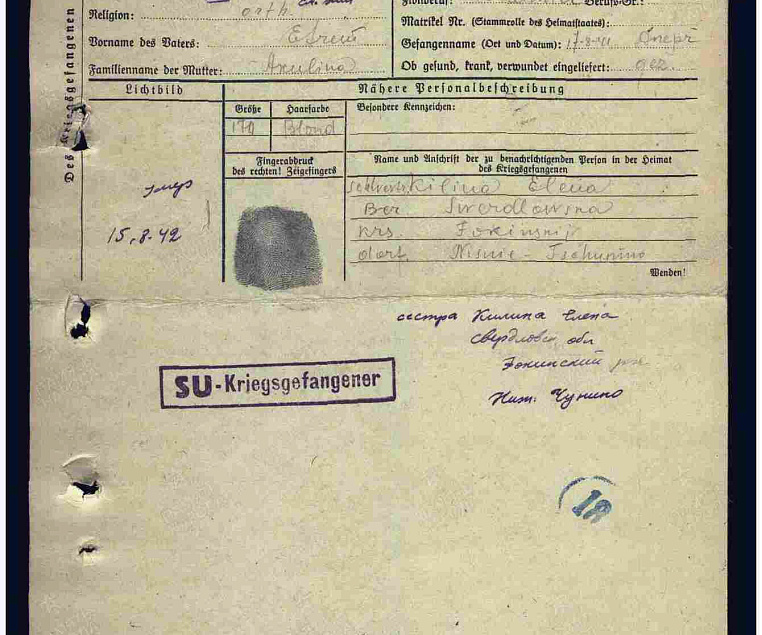 Religion: orth.
Matrikel Nr. (Stammrolle des Heimatstaates):
Vorname des Vaters:
Gefangenname (Ort und Datum): 17-8-41 Dnepr
Familienname der Mutter: Akulina
Ob gesund, krank, verwundet eingeliefert: gez.
Des Kriegsgefangenen
Lichtbild
Nähere Personalbeschreibung
Größe Haarfarbe
Besondere Kennzeichen:
170 Blond
Fingerabdruck
des rechten! Zeigefingers
Name und Anschrift der zu benachrichtigenden Person in der Heimat
des Kriegsgefangenen
Kilina Elena
Ber Swerdlowska
krs. Fokinskij
dorf. Nisnie-Tschunino
Wenden!
15.8.42
сестра Килина Елена
обл
Фокинский
Ниж. Чунино
SU-Kriegsgefangener
18